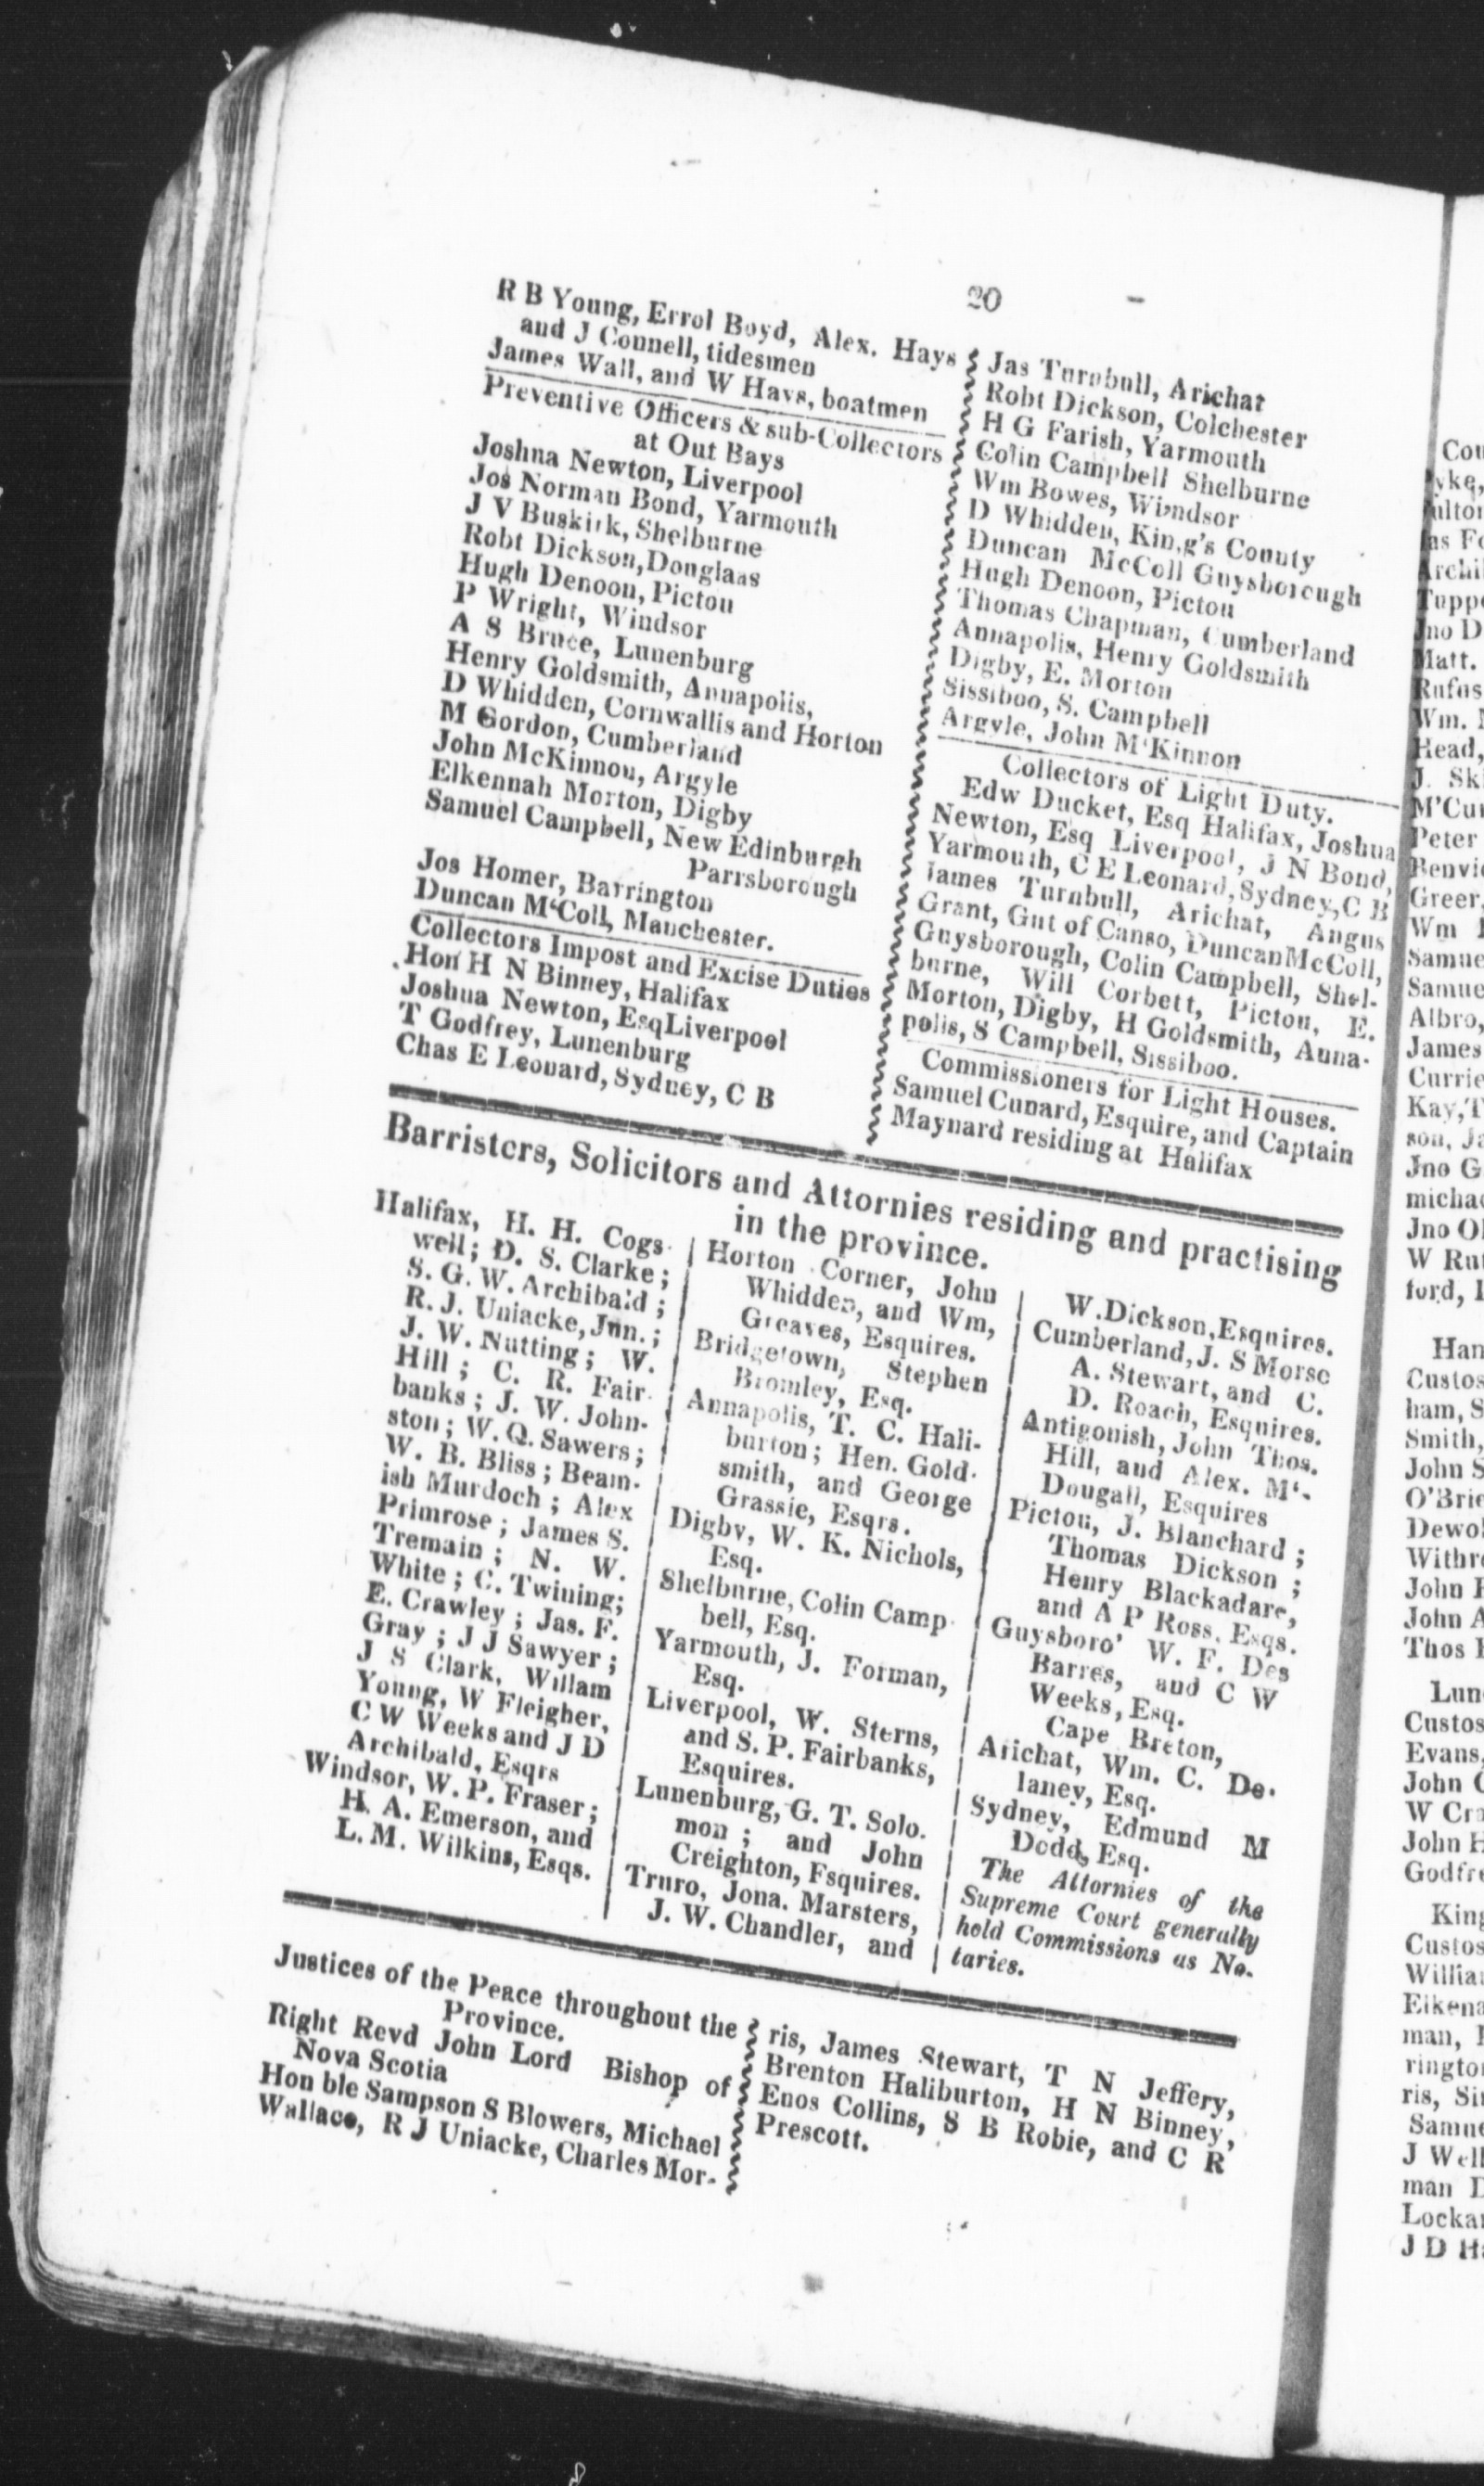 20
R B Young, Errol Boyd, Alex. Hays
and J Connell, tidesmen
James Wall, and W Hays, boatmen
Preventive Officers & sub-Collectors
at Out Bays
Joshna Newton, Liverpool
Jos Norman Bond, Yarmouth
J V Buskirk, Shelburne
Robt Dickson, Douglaas
Hugh Denoon, Pictou
P Wright, Windsor
A S Bruce, Lunenburg
Henry Goldsmith, Annapolis,
D Whidden, Cornwallis and Horton
M Gordon, Cumberland
John McKinnon, Argyle
Elkennah Morton, Digby
Samuel Campbell, New Edinburgh
Parrsborough
Jos Homer, Barrington
Duncan M'Coll, Manchester.
Collectors Impost and Excise Duties
Hon H N Binney, Halifax
Joshua Newton, Esq Liverpool
T Godfrey, Lunenburg
Chas E Leonard, Sydney, C B
Jas Turnbull, Arichat
Robt Dickson, Colchester
H G Farish, Yarmouth
Colin Campbell Shelburne
Wm Bowes, Windsor
D Whidden, King's County
Duncan McColl Guysborough
Hugh Denoon, Pictou
Thomas Chapman, Cumberland
Annapolis, Henry Goldsmith
Digby, E. Morton
Sissiboo, S. Campbell
Argyle, John M'Kinnon
Collectors of Light Duty.
Edw Ducket, Esq Halifax, Joshua
Newton, Esq Liverpool, J N Bond,
Yarmouth, C E Leonard, Sydney, C B
James Turnbull, Arichat, Angus
Grant, Gut of Canso, Duncan McColl,
Guysborough, Colin Campbell, Shel-
burne, Will Corbett, Pictou, E.
Morton, Digby, H Goldsmith, Anna-
polis, S Campbell, Sissiboo.
Commissioners for Light Houses.
Samuel Cunard, Esquire, and Captain
Maynard residing at Halifax
Barristers, Solicitors and Attornies residing and practising
in the province.
Halifax, H. H. Cogs-
well; D. S. Clarke;
S. G. W. Archibald;
R. J. Uniacke, Jun.;
J. W. Nutting; W.
Hill; C. R. Fair-
banks; J. W. John-
ston; W. Q. Sawers;
W. B. Bliss; Beam-
ish Murdoch; Alex
Primrose; James S.
Tremain; N. W.
White; C. Twining;
E. Crawley; Jas. F.
Gray; J J Sawyer;
J S Clark, Willam
Young, W Fleigher,
C W Weeks and J D
Archibald, Esqrs
Windsor, W. P. Fraser;
H. A. Emerson, and
L. M. Wilkins, Esqs.
Horton Corner, John
Whidden, and Wm,
Greaves, Esquires.
Bridgetown, Stephen
Bromley, Esq.
Annapolis, T. C. Hali-
burton; Hen. Gold-
smith, and George
Grassie, Esqrs.
Digby, W. K. Nichols,
Esq.
Shelburne, Colin Camp-
bell, Esq.
Yarmouth, J. Forman,
Esq.
Liverpool, W. Sterns,
and S. P. Fairbanks,
Esquires.
Lunenburg, G. T. Solo-
mon; and John
Creighton, Esquires.
Truro, Jona. Marsters,
J. W. Chandler, and
W. Dickson, Esquires.
Cumberland, J. S Morse
A. Stewart, and C.
D. Roach, Esquires.
Antigonish, John Thos.
Hill, and Alex. M'-
Dougall, Esquires
Pictou, J. Blanchard;
Thomas Dickson;
Henry Blackadare,
and A P Ross, Esqs.
Guysboro' W. F. Des
Barres, and C W
Weeks, Esq.
Cape Breton,
Arichat, Wm. C. De-
laney, Esq.
Sydney, Edmund M
Dodd, Esq.
The Attornies of the
Supreme Court generally
hold Commissions as No-
taries.
Justices of the Peace throughout the
Province.
Right Revd John Lord Bishop of
Nova Scotia
Hon ble Sampson S Blowers, Michael
Wallace, R J Uniacke, Charles Mor-
ris, James Stewart, T N Jeffery,
Brenton Haliburton, H N Binney,
Enos Collins, S B Robie, and C R
Prescott.
Archi
Jno D
Matt.
Rufus
Head,
Peter
Greer,
Samue
Samue
Albro,
James
Currie
Kay, T
son, Ja
Jno G
michae
Jno Ol
W Rut
ford, I
Han
Custos
ham, S
Smith,
John S
O'Brie
Dewol
Withro
John
John A
Thos
Lun
Custos
Evans,
John C
W Cra
John H
Godfre
King
Custos
Willia
Elkena
man,
rington
ris, Si
Samue
J Well
man D
Lockar
J D Ha